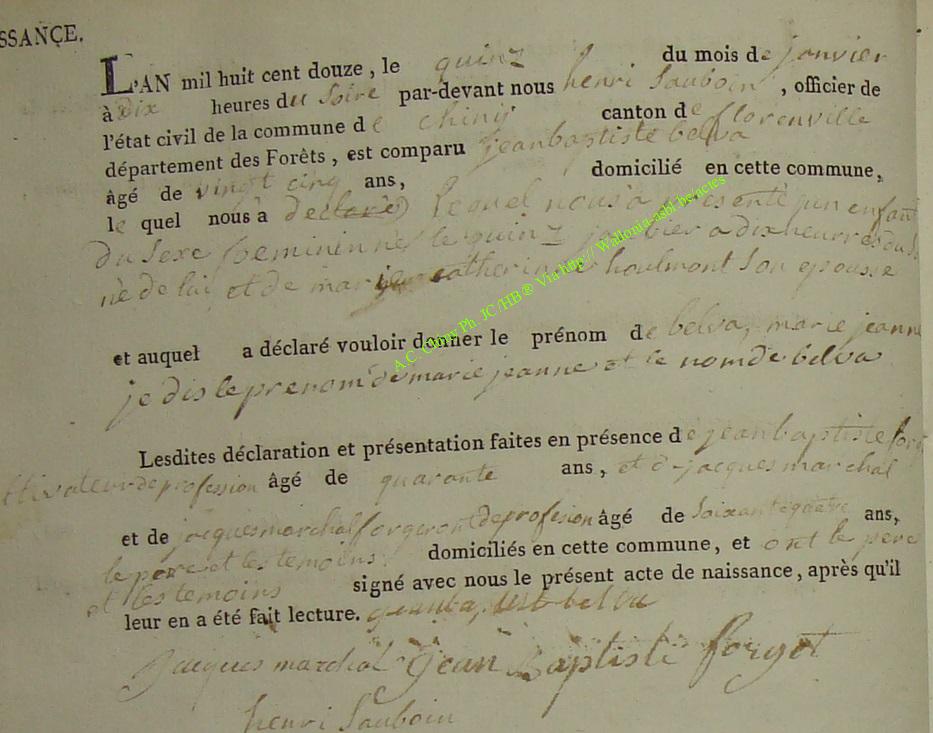 SSANCE.
L'AN mil huit cent douze, le quinz du mois de janvier
à dix heures du Soire par-devant nous henri Sauboin, officier de
l'état civil de la commune de chiny canton de florenville
département des Forêts, est comparu jeanbaptiste belva
âgé de vingt cinq ans, domicilié en cette commune,
le quel nous a declaré lequel nous a presenté un enfant
du Sexe feminin né le quinz janvier a dix heurres du S
né de lui et de marie catherine houlmont Son epouse
et auquel a déclaré vouloir donner le prénom de belva, marie jeanne
je dis le prenom de marie jeanne et le nom de belva
Lesdites déclaration et présentation faites en présence de jeanbaptiste forg
ltivateur de profession âgé de quarante ans, et d jacques marchal
et de jacques marchal forgeront de profesion âgé de Soixante quatre ans,
le pere et les temoins domiciliés en cette commune, et ont le pere
et les temoins signé avec nous le présent acte de naissance, après qu'il
leur en a été fait lecture. jeanbaptiste belva
Jacques marchal Jean Baptiste forget
henri Sauboin
A.C. Chiny Ph. JC /HB ® Via http// Wallonia-asbl-be/actes